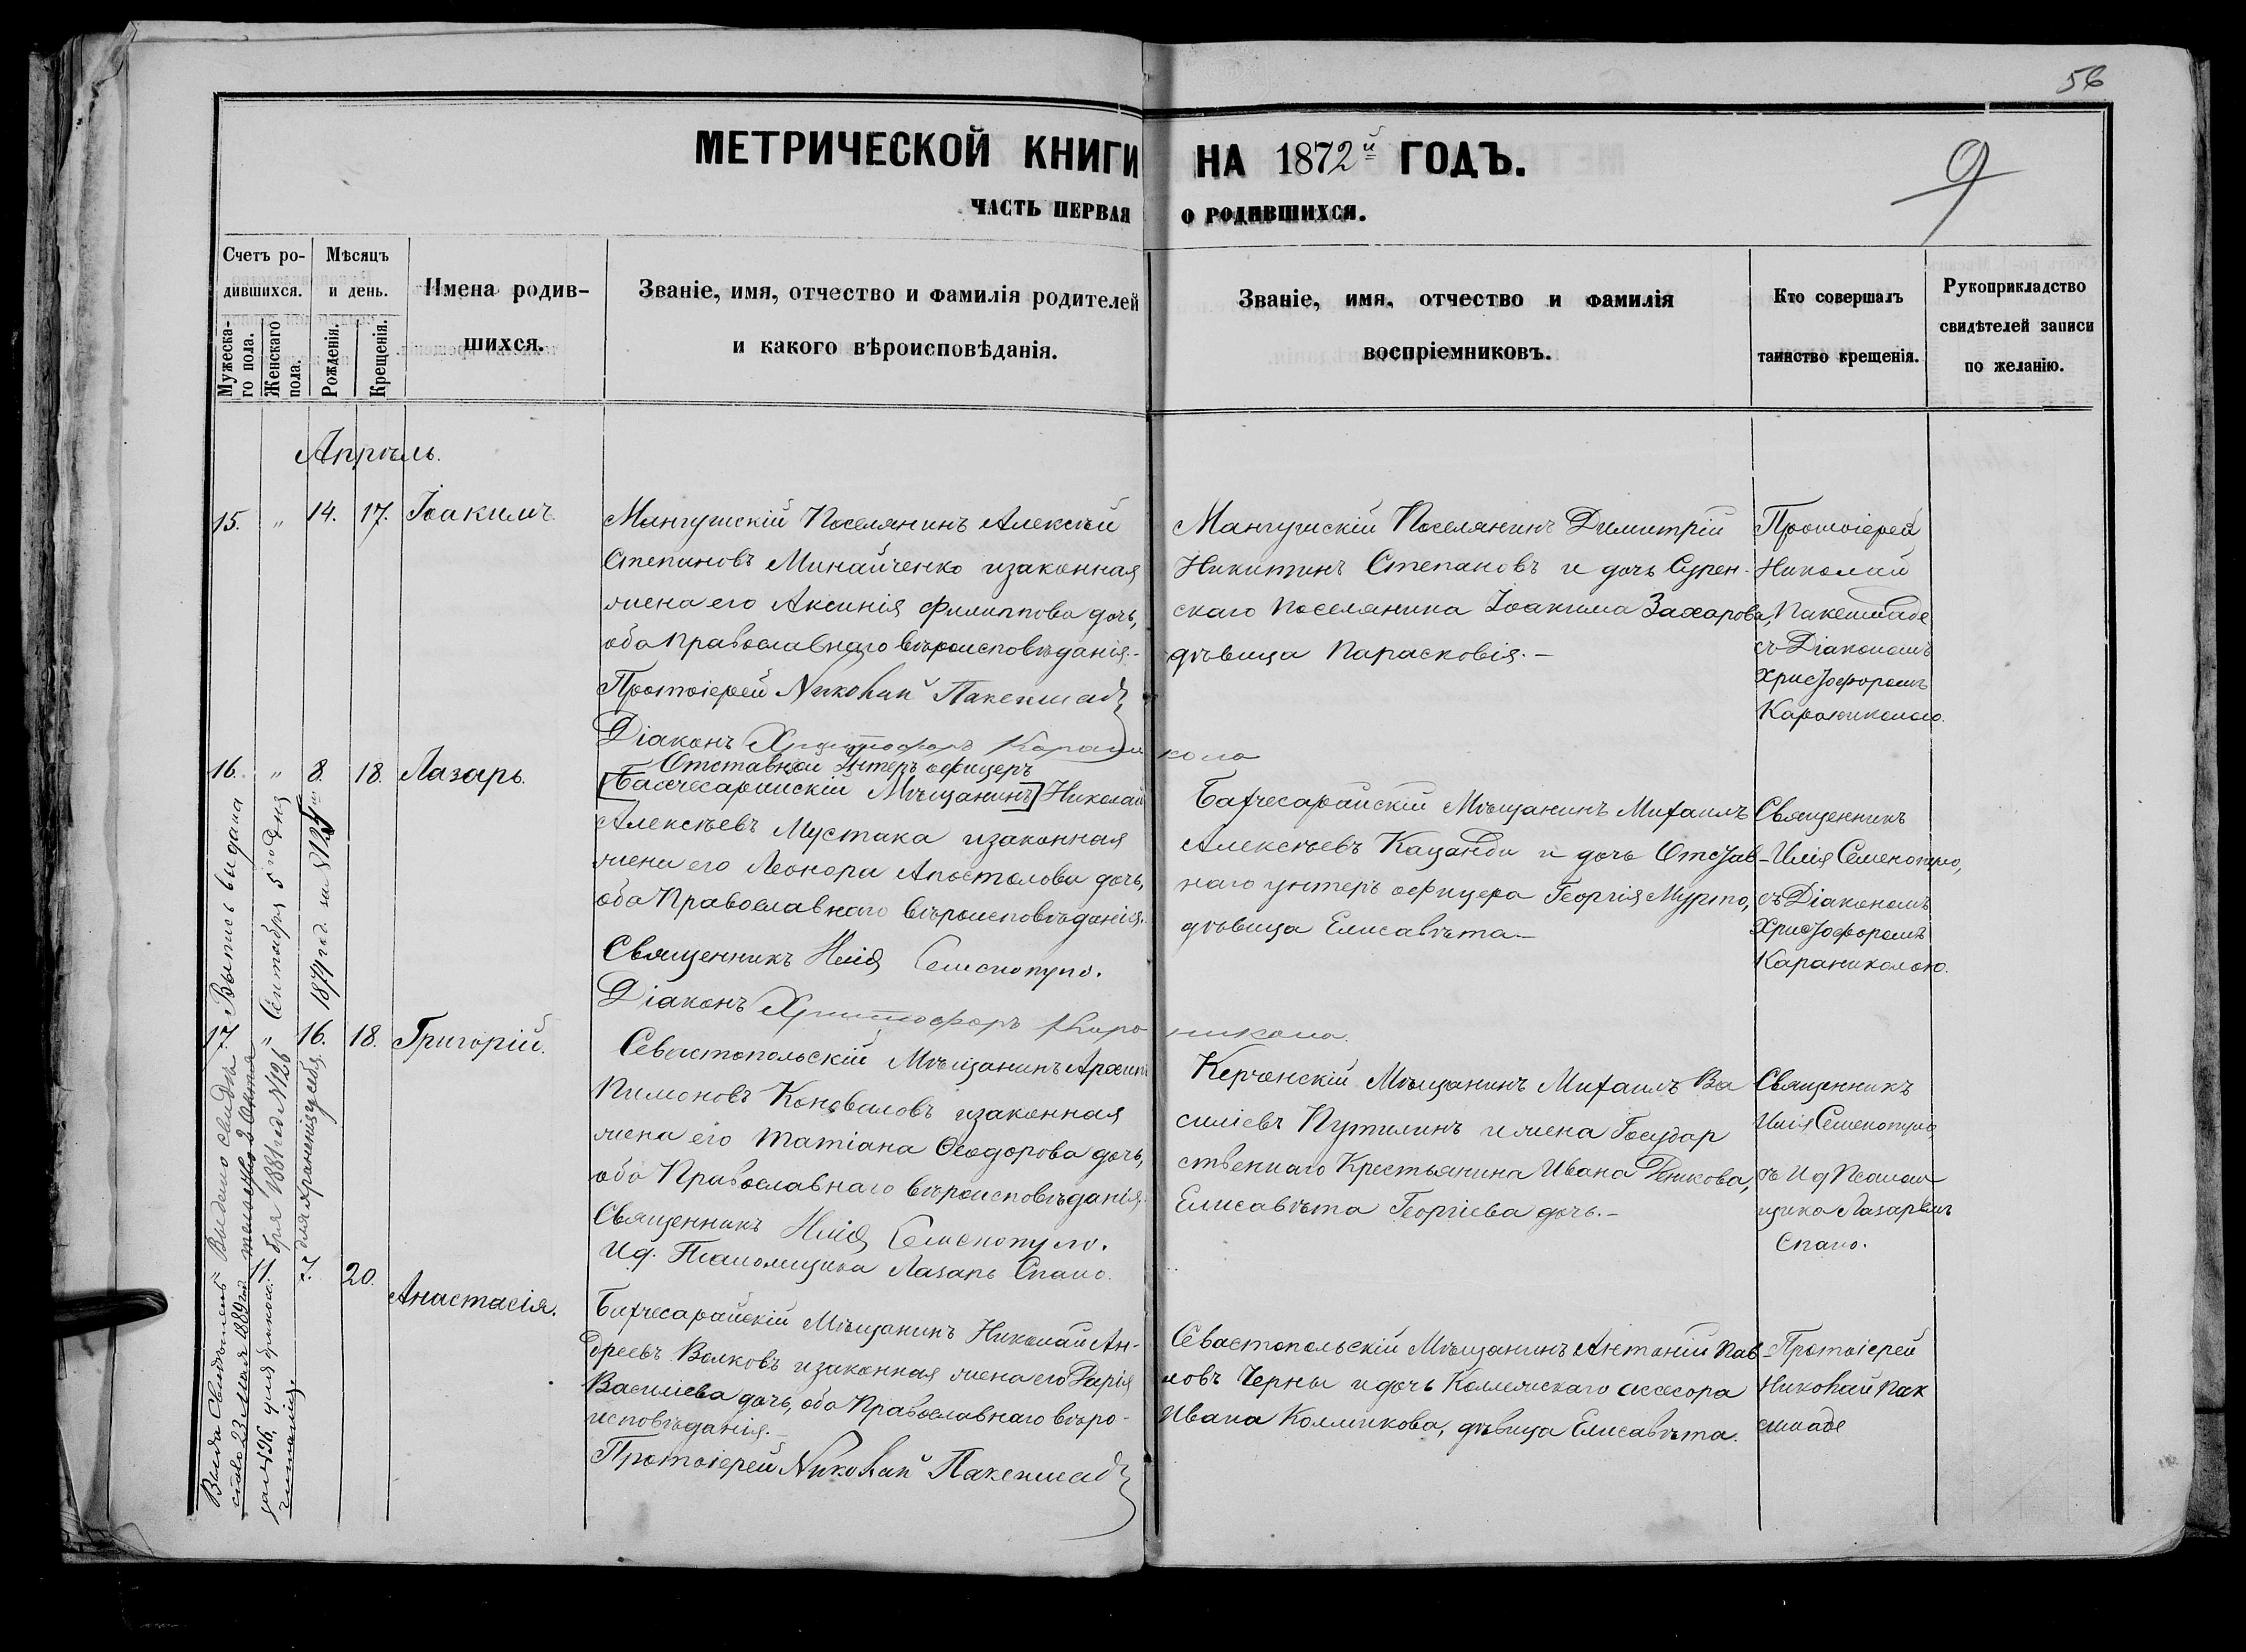 56
9
МЕТРИЧЕСКОЙ КНИГИ НА 1872й ГОДЪ.
ЧАСТЬ ПЕРВАЯ О РОДИВШИХСЯ.
Счетъ ро-
дившихся.
Мужеска-
го пола.
Женскаго
пола.
Мѣсяцъ
и день.
Рожденія.
Крещенія.
Имена родив-
шихся.
Званіе, имя, отчество и фамилія родителей
и какого вѣроисповѣданія.
Званіе, имя, отчество и фамилія
воспріемниковъ.
Кто совершалъ
таинство крещенія.
Рукоприкладство
свидѣтелей записи
по желанію.
Апрѣль.
15. " 14. 17. Іоакимъ.
Мангушскій Поселянинъ Алексѣй
Степановъ Минайченко и законная
жена его Аксинія Филиппова дочь,
оба Православнаго вѣроисповѣданія.-
Протоіерей Николай Пакепшадѣ
Діаконъ Христофоръ Караникола
Мангушскій Поселянинъ Димитрій
Никитинъ Степановъ и дочь Сурен-
скаго Поселянина Іоакима Захарова,
дѣвица Парасковія.-
Протоіерей
Николай
Пакепшаде
съ Діакономъ
Христофоромъ
Караниколою.
16. " 8. 18. Лазарь.
Отставной Унтеръ офицеръ
[Бахчесарайскій Мѣщанинъ] Николай
Алексѣевъ Мустака и законная
жена его Леонора Апостолова дочь,
оба Православнаго вѣроисповѣданія.
Священникъ Илія Семенопуло.
Діаконъ Христофоръ Караникола.
Бахчесарайскій Мѣщанинъ Михаилъ
Алексѣевъ Кацанди и дочь Отстав-
наго унтеръ офицера Георгія Мурто,
дѣвица Елисавѣта.-
Священникъ
Илія Семенопуло,
съ Діакономъ
Христофоромъ
Караниколою.
17. " 16. 18. Григорій.
Севастопольскій Мѣщанинъ Архипъ
Пимоновъ Коноваловъ и законная
жена его Татіана Ѳеодорова дочь,
оба Православнаго вѣроисповѣданія.
Священникъ Илія Семенопуло.
Ид. Псаломщика Лазарь Спано.
Керченскій Мѣщанинъ Михаилъ Ва
силіевъ Путилинъ и жена Государ
ственнаго Крестьянина Ивана Рѣпкова,
Елисавѣта Георгіева дочь.-
Священникъ
Илія Семенопуло,
съ Ид Псалом
щика Лазаремъ
Спано.
11. 20. Анастасія.
Бахчесарайскій Мѣщанинъ Николай Ан-
дреевъ Волковъ и законная жена его Дарія
Василіева дочь, оба Православнаго вѣро-
исповѣданія.-
Протоіерей Николай Пакепшадѣ
Севастопольскій Мѣщанинъ Антоній Пав-
ловъ Черны и дочь Коллежскаго асесора
Ивана Колмикова, дѣвица Елисавѣта.
Протоіерей
Николай Пак
епшаде
Выпись выдана
Сентября 5 го дня
1874 год. за №125
Выдано свидѣ
тельство 2 Октя
бря 1881 год №126
для храненія у себя.
Выдано Свидѣтель
ство 23 Мая 1889 год
за №96, для брачной.